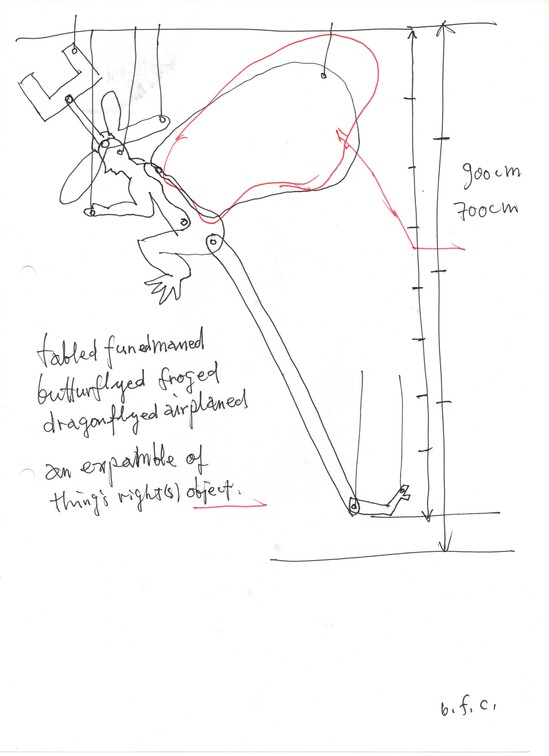 900cm
700cm
tabled funedmaned
butturflyed froged
dragonflyed airplaned
an expamble of
thing's right(s) object.
b.f.c.